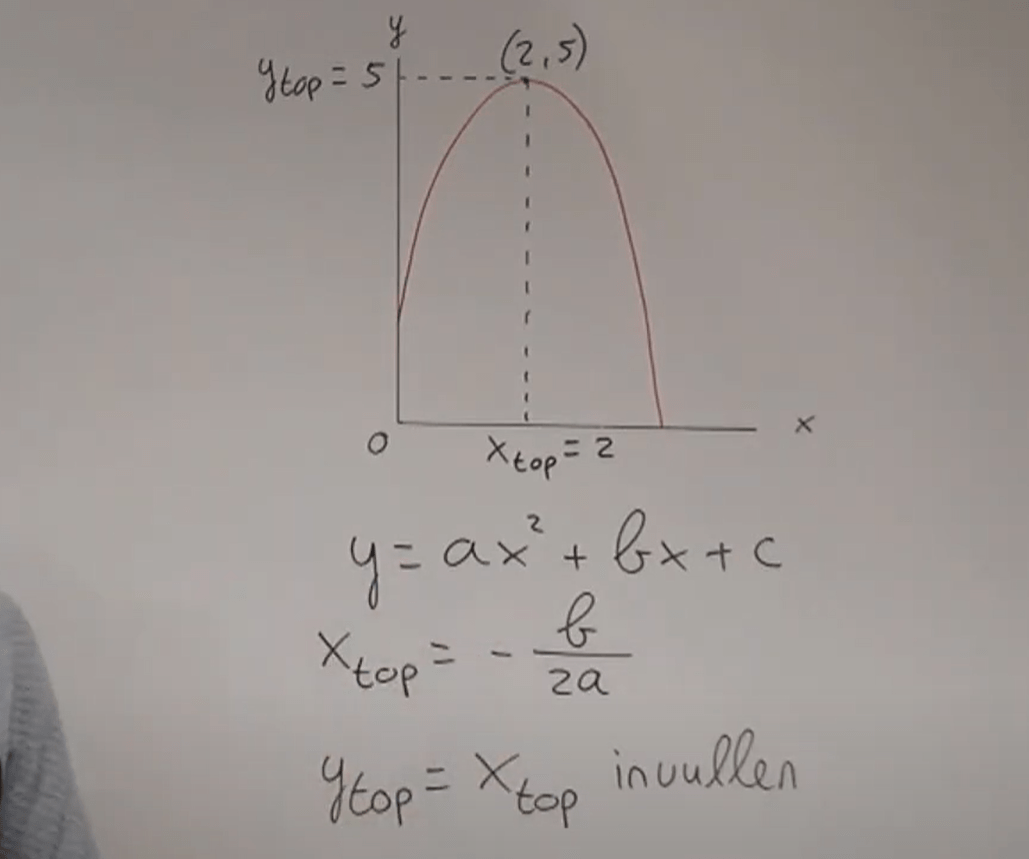 y
(2,5)
y top = 5
0
x top = 2
x
y = ax² + bx + c
x top = - b / 2a
y top = x top invullen